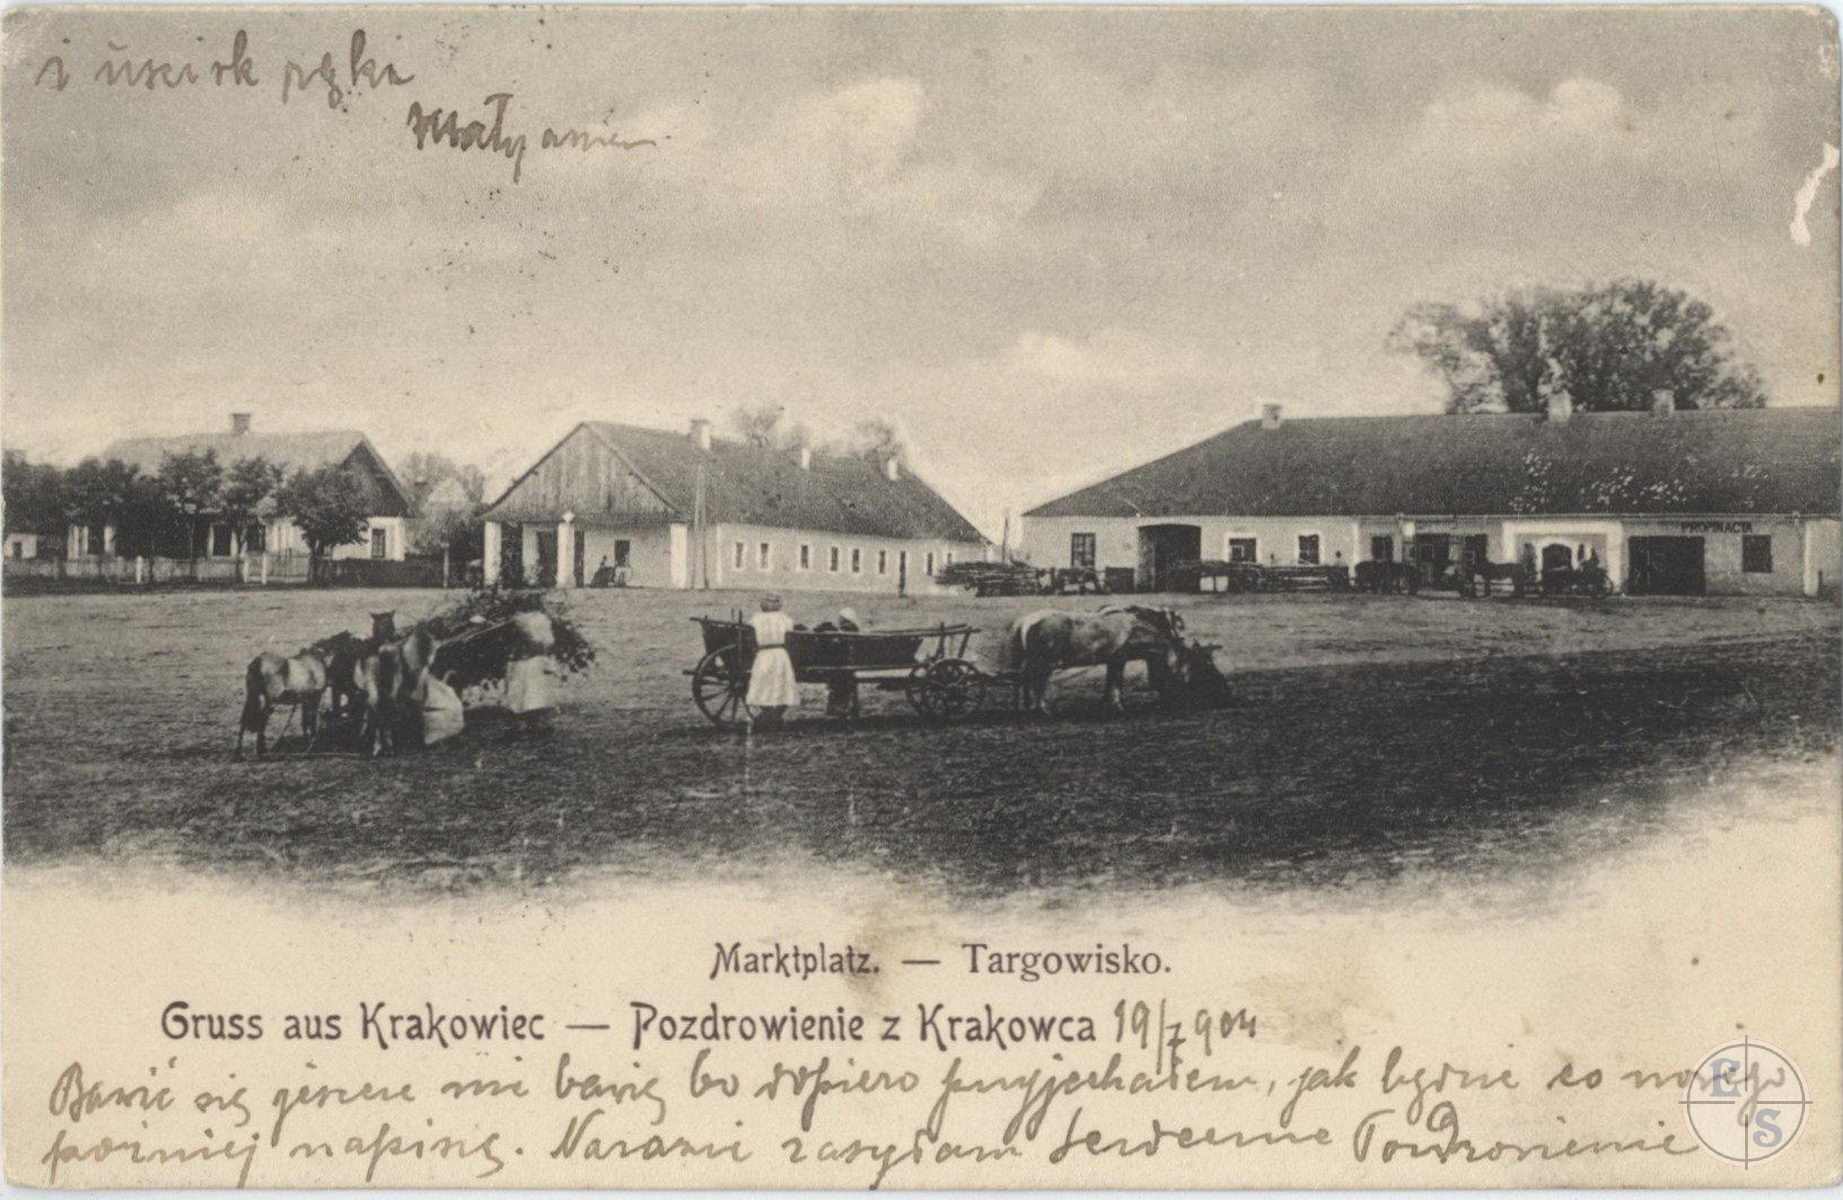 i uscisk ręki
PROPINACYA
Marktplatz. — Targowisko.
Gruss aus Krakowiec — Pozdrowienie z Krakowca 19/7 904
Bawić się jeszcze nie bawię bo dopiero przyjechałem, jak będzie co nowego
później napiszę. Narazie zasyłam serdeczne Pozdrowienie
E S